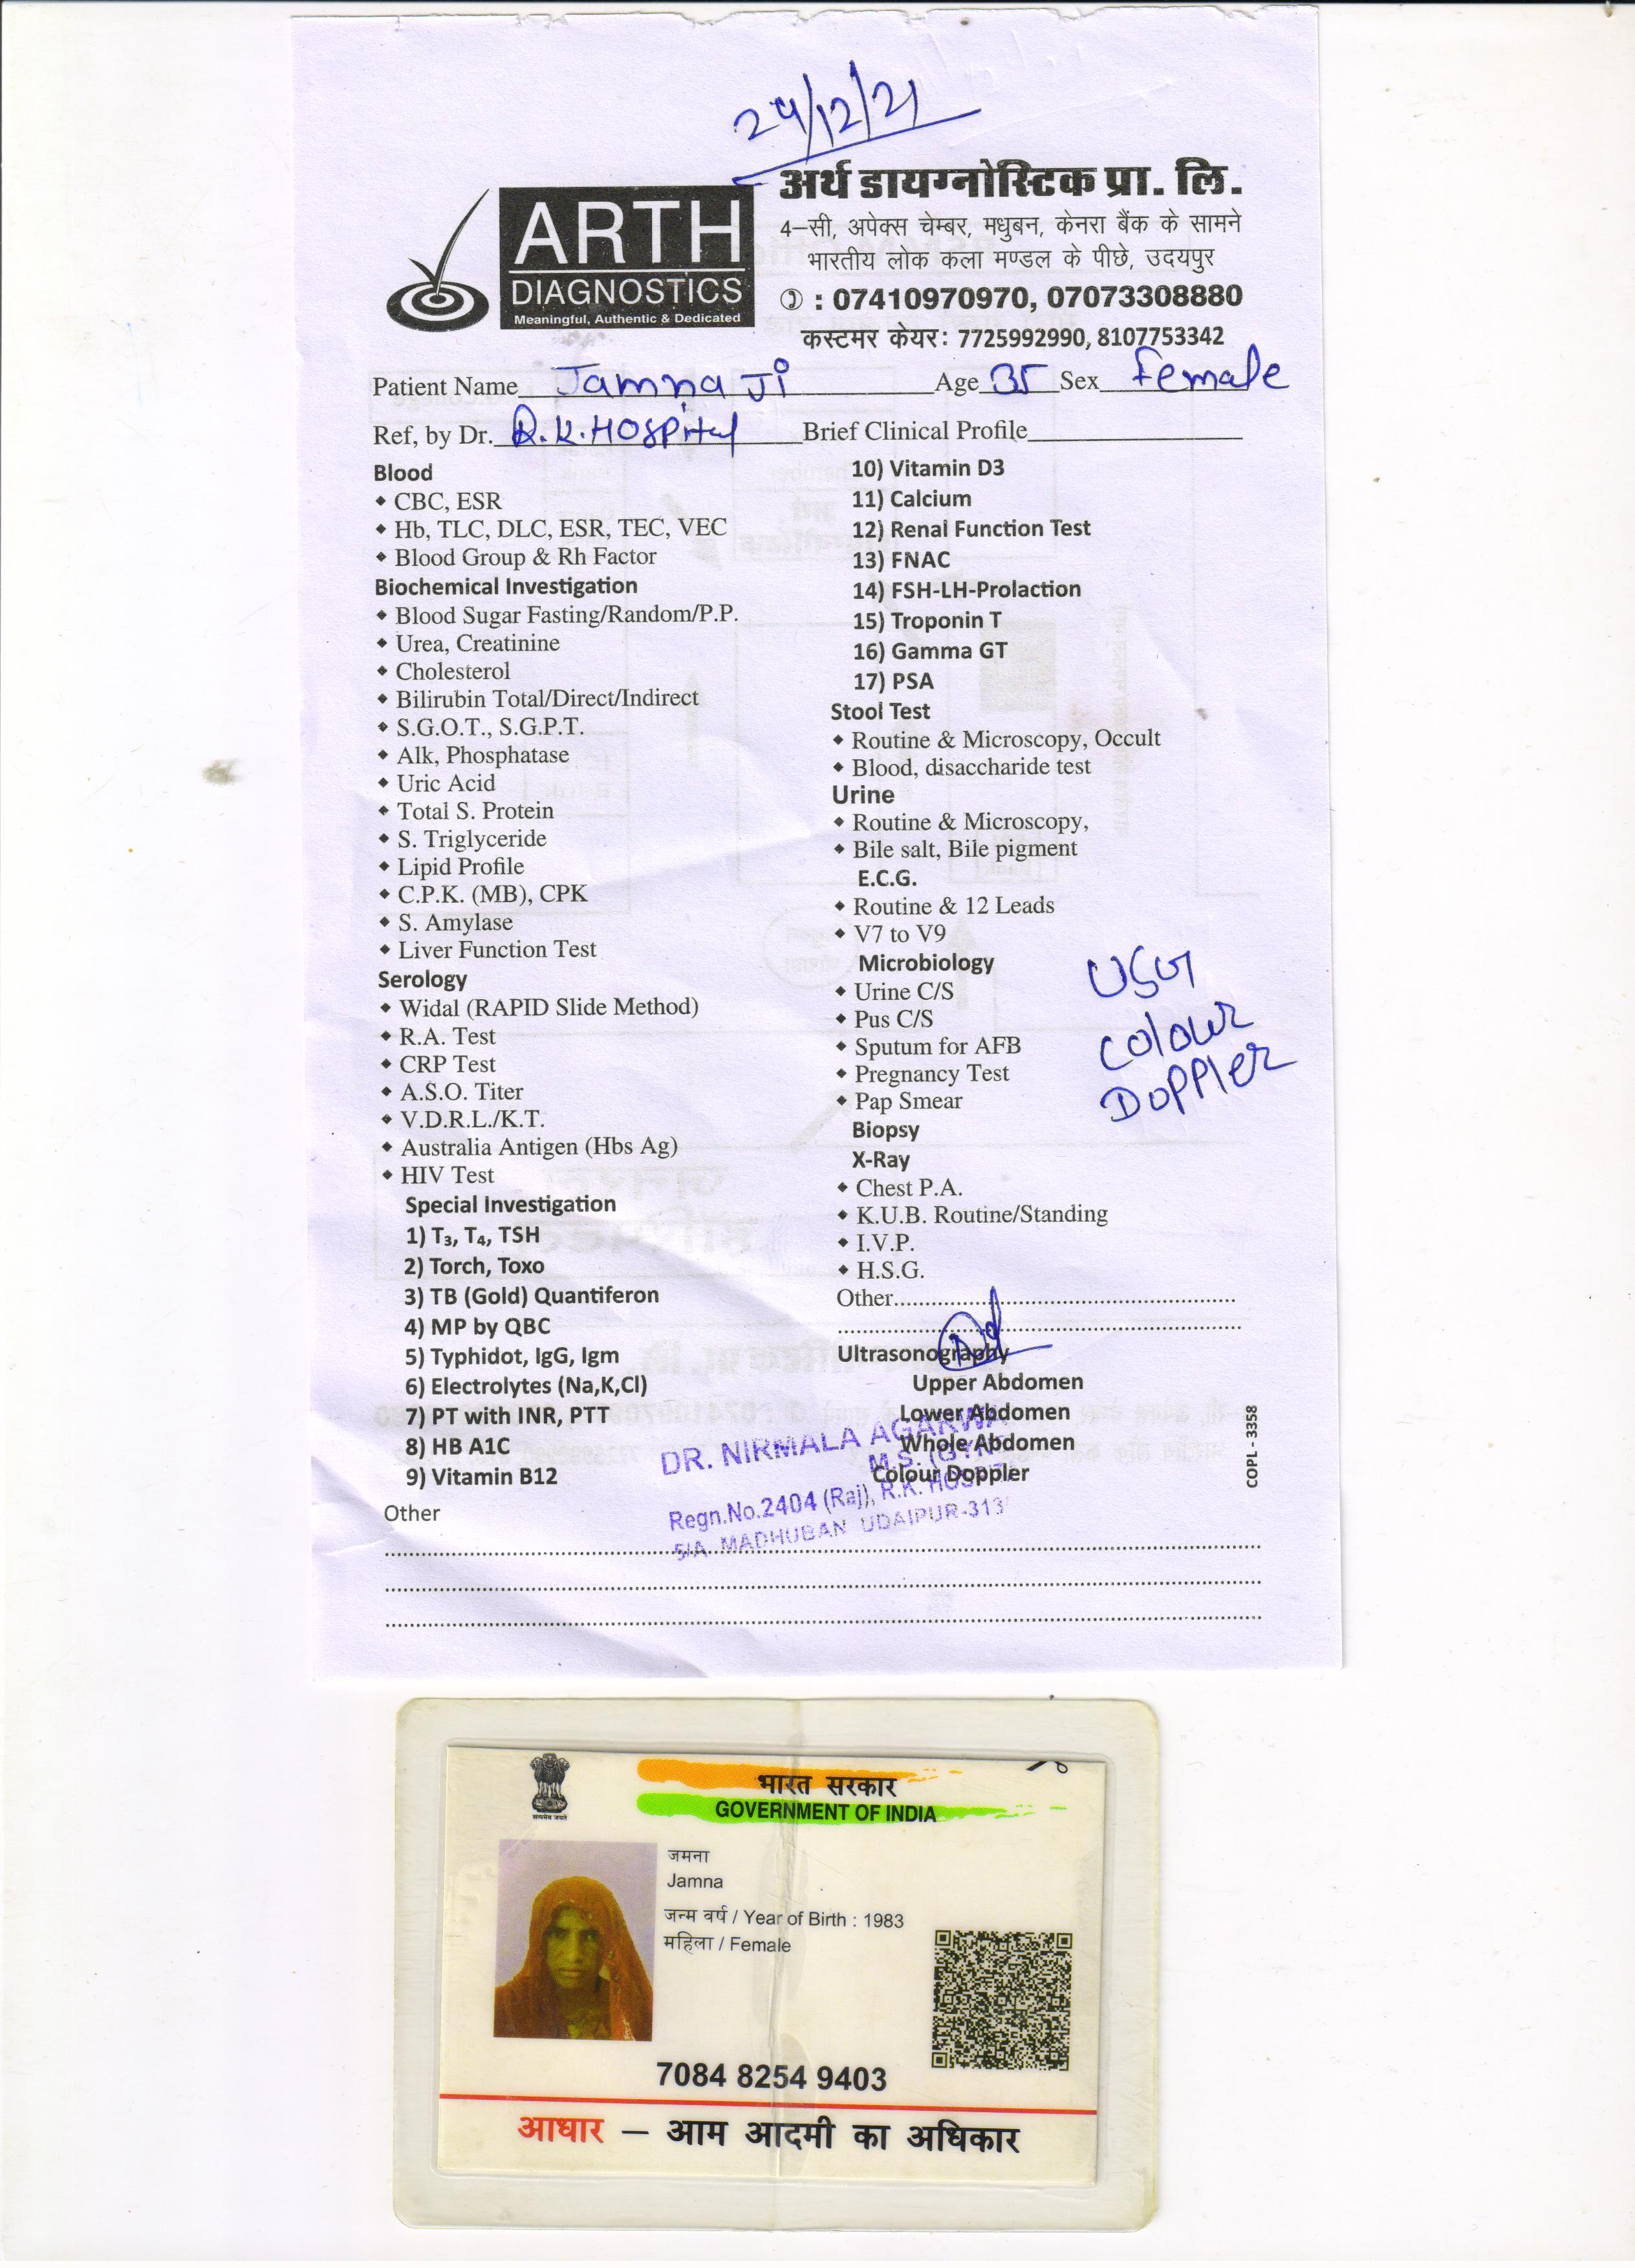 24/12/21
ARTH
DIAGNOSTICS
Meaningful, Authentic & Dedicated
अर्थ डायग्नोस्टिक प्रा. लि.
4-सी, अपेक्स चेम्बर, मधुबन, केनरा बैंक के सामने
भारतीय लोक कला मण्डल के पीछे, उदयपुर
✆ : 07410970970, 07073308880
कस्टमर केयर: 7725992990, 8107753342
Patient Name Jamna Ji Age 35 Sex Female
Ref, by Dr. R.K. Hospital Brief Clinical Profile
Blood
CBC, ESR
Hb, TLC, DLC, ESR, TEC, VEC
Blood Group & Rh Factor
Biochemical Investigation
Blood Sugar Fasting/Random/P.P.
Urea, Creatinine
Cholesterol
Bilirubin Total/Direct/Indirect
S.G.O.T., S.G.P.T.
Alk, Phosphatase
Uric Acid
Total S. Protein
S. Triglyceride
Lipid Profile
C.P.K. (MB), CPK
S. Amylase
Liver Function Test
Serology
Widal (RAPID Slide Method)
R.A. Test
CRP Test
A.S.O. Titer
V.D.R.L./K.T.
Australia Antigen (Hbs Ag)
HIV Test
Special Investigation
1) T₃, T₄, TSH
2) Torch, Toxo
3) TB (Gold) Quantiferon
4) MP by QBC
5) Typhidot, IgG, Igm
6) Electrolytes (Na,K,Cl)
7) PT with INR, PTT
8) HB A1C
9) Vitamin B12
Other
10) Vitamin D3
11) Calcium
12) Renal Function Test
13) FNAC
14) FSH-LH-Prolaction
15) Troponin T
16) Gamma GT
17) PSA
Stool Test
Routine & Microscopy, Occult
Blood, disaccharide test
Urine
Routine & Microscopy,
Bile salt, Bile pigment
E.C.G.
Routine & 12 Leads
V7 to V9
Microbiology
Urine C/S
Pus C/S
Sputum for AFB
Pregnancy Test
Pap Smear
Biopsy
X-Ray
Chest P.A.
K.U.B. Routine/Standing
I.V.P.
H.S.G.
Other
Ultrasonography
Upper Abdomen
Lower Abdomen
Whole Abdomen
Colour Doppler
USG
Colour
Doppler
DR. NIRMALA AGARWA
M.S. (GYN
Regn.No.2404 (Raj), R.K. HOSPIT
5/A MADHUBAN UDAIPUR-313
COPL - 3358
सत्यमेव जयते
भारत सरकार
GOVERNMENT OF INDIA
जमना
Jamna
जन्म वर्ष / Year of Birth : 1983
महिला / Female
7084 8254 9403
आधार – आम आदमी का अधिकार